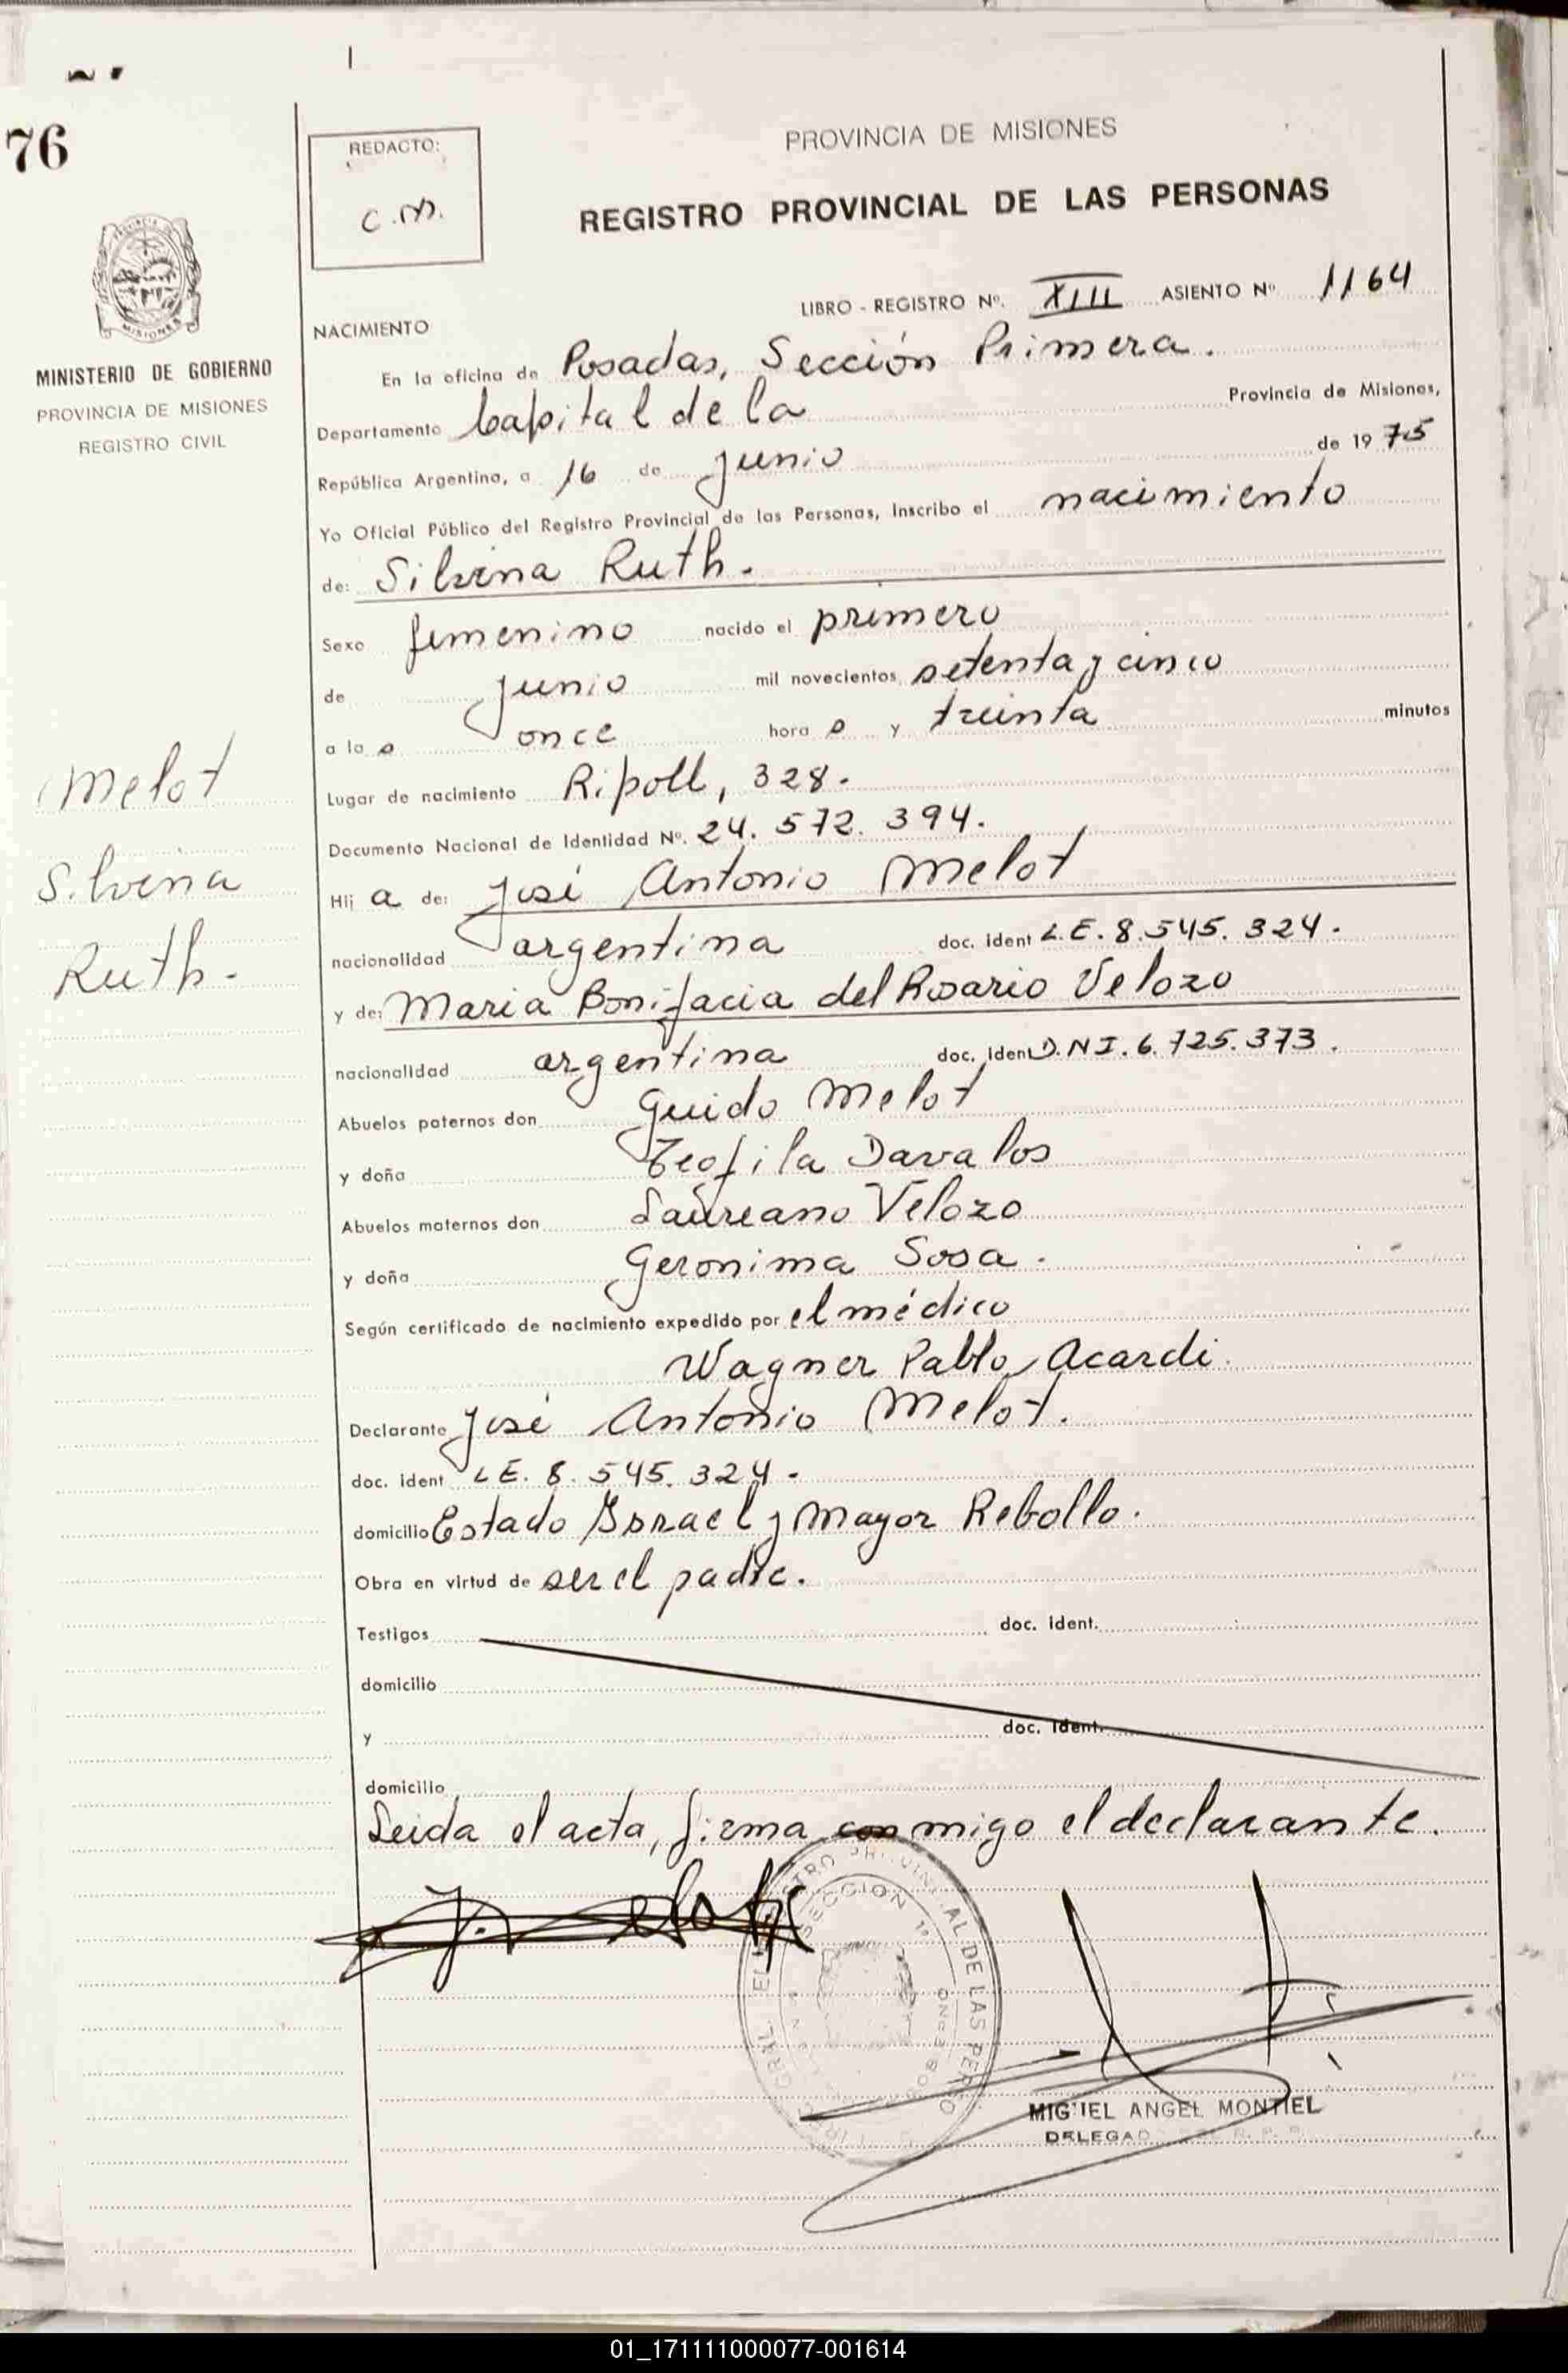 76
REDACTO:
C.M.
PROVINCIA DE MISIONES
REGISTRO PROVINCIAL DE LAS PERSONAS
MINISTERIO DE GOBIERNO
PROVINCIA DE MISIONES
REGISTRO CIVIL
LIBRO - REGISTRO Nº. XIII ASIENTO Nº 1164
NACIMIENTO
En la oficina de Posadas, Sección Primera.
Departamento Capital de la Provincia de Misiones,
República Argentina, a 16 de junio de 1975
Yo Oficial Público del Registro Provincial de las Personas, Inscribo el nacimiento
de: Silvina Ruth.
Sexo femenino nacido el primero
de junio mil novecientos setenta y cinco
a la s once hora s y treinta minutos
Lugar de nacimiento Ripoll, 328.
Documento Nacional de Identidad Nº. 24.572.394.
Melot
Silvina
Ruth.
Hij a de: José Antonio Melot
nacionalidad argentina doc. ident L.E. 8.545.324.
y de: Maria Bonifacia del Rosario Velozo
nacionalidad argentina doc. ident D.N I. 6.725.373.
Abuelos paternos don Guido Melot
y doña Teofila Davalos
Abuelos maternos don Laureano Velozo
y doña Geronima Sosa.
Según certificado de nacimiento expedido por el médico
Wagner Pablo Acardi.
Declarante José Antonio Melot.
doc. ident LE. 8.545.324.
domicilio Estado Israel y Mayor Rebollo.
Obra en virtud de ser el padre.
Testigos doc. ident.
domicilio
y doc. ident.
domicilio
Leida el acta, firma conmigo el declarante.
SECCION 1ª
MIGUEL ANGEL MONTIEL
DELEGAD
01_171111000077-001614